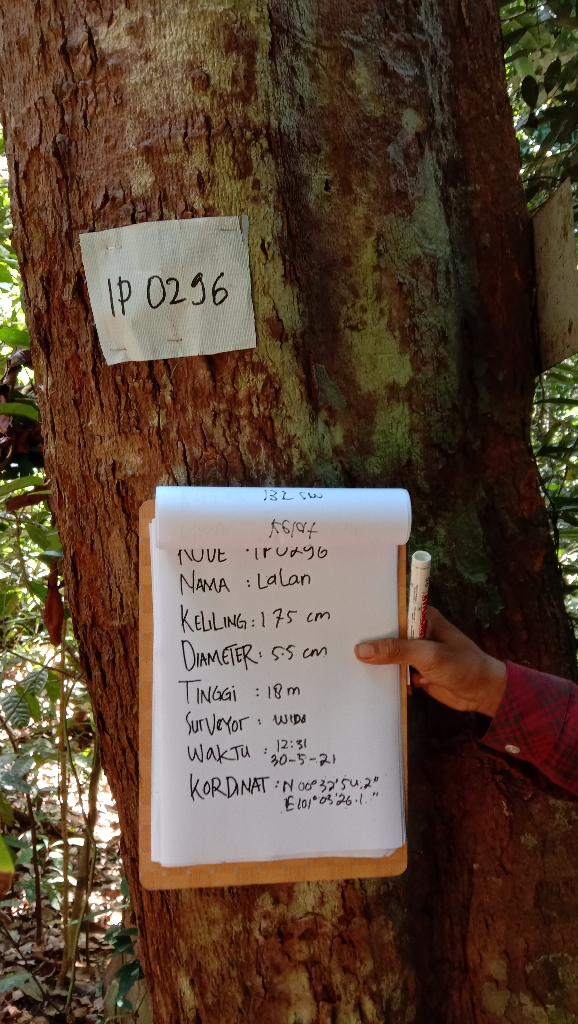 IP 0296
132 cm
KODE : IP 0296
NAMA : LaLan
KELILING : 175 cm
DIAMETER : 5.5 cm
TINGGI : 18 m
SURVEYOR : WIDO
WAKTU : 12:31
30-5-21
KORDINAT : N 00° 32' 54.2"
E 101° 03' 26.1"